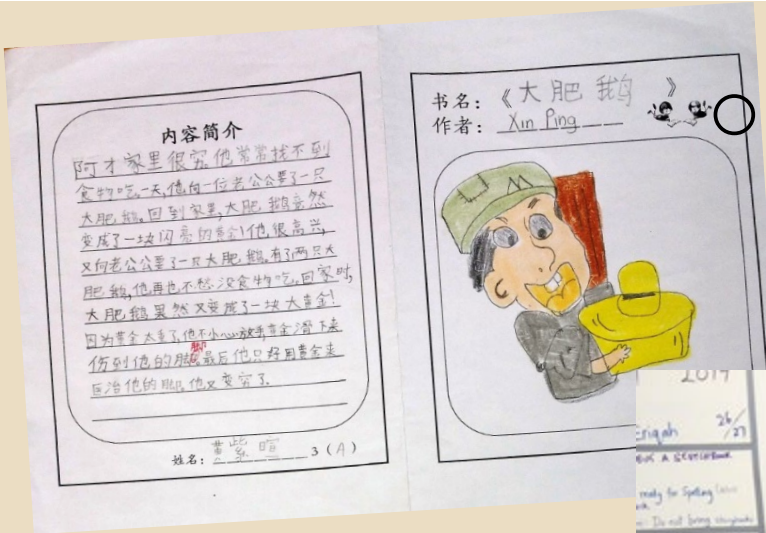 内容简介
阿才家里很穷,他常常找不到
食物吃。一天,他向一位老公公要了一只
大肥鹅。回到家里,大肥鹅竟然
变成了一块闪亮的黄金!他很高兴,
又向老公公要了一只大肥鹅。有了两只大
肥鹅,他再也不愁没食物吃。回家时,
大肥鹅果然又变成了一块大黄金!
因为黄金太重了,他不小心放手,黄金滑下来
伤到他的脚。最后他只好用黄金来
医治他的脚。他又变穷了。
姓名: 黄紫暄 3 (A)
书名:《大肥鹅》
作者: Xin Ping
2019
26/
/27
eriqah
A SKETCHBOOK
ready for Spelling
Do not bring storybooks